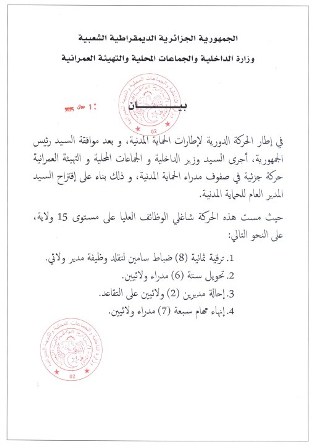 الجمهورية الجزائرية الديمقراطية الشعبية
وزارة الداخلية والجماعات المحلية والتهيئة العمرانية
بيـــــان
في إطار الحركة الدورية لإطارات الحماية المدنية، و بعد موافقة السيد رئيس
الجمهورية، أجرى السيد وزير الداخلية و الجماعات المحلية و التهيئة العمرانية
حركة جزئية في صفوف مدراء الحماية المدنية، و ذلك بناء على إقتراح السيد
المدير العام للحماية المدنية.
حيث مست هذه الحركة شاغلي الوظائف العليا على مستوى 15 ولاية،
على النحو التالي:
1. ترقية ثمانية (8) ضباط سامين لتقلد وظيفة مدير ولائي.
2. تحويل ستة (6) مدراء ولائيين.
3. إحالة مديرين (2) ولائيين على التقاعد.
4. إنهاء مهام سبعة (7) مدراء ولائيين.